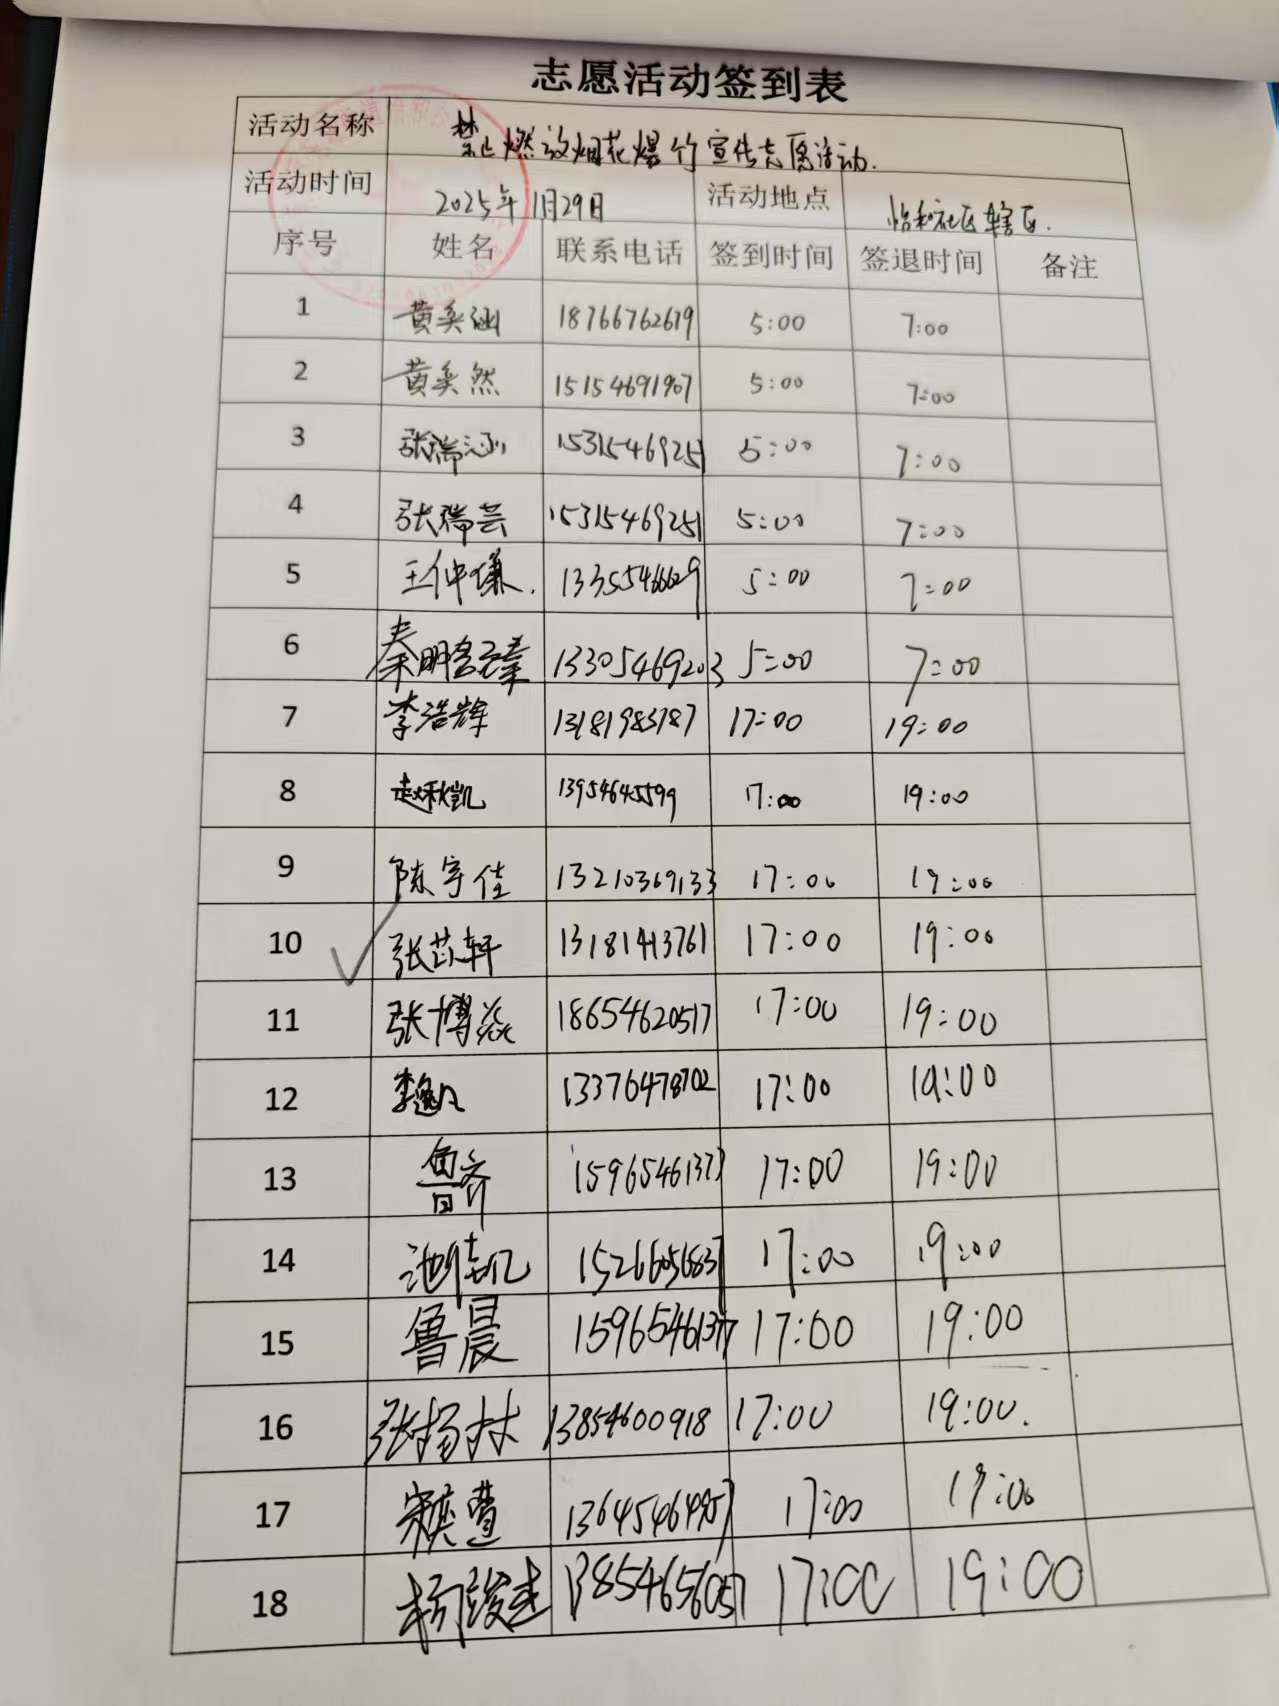 志愿活动签到表
活动名称 禁止燃放烟花爆竹宣传志愿活动.
活动时间 2025年1月29日 活动地点 怡和社区辖区.
序号 姓名 联系电话 签到时间 签退时间 备注
1 黄奕涵 18766762619 5:00 7:00
2 黄奕然 15154691907 5:00 7:00
3 张瑞涵 15315469251 5:00 7:00
4 张瑞芸 15315469251 5:00 7:00
5 王仲谦. 13355466629 5:00 7:00
6 秦明 13305469203 5:00 7:00
7 李浩辉 13181983787 17:00 19:00
8 赵秋凯 13954645599 17:00 19:00
9 陈宇佳 13210369133 17:00 19:00
10 张芯轩 13181413761 17:00 19:00
11 张博焱 18654620517 17:00 19:00
12 李逸凡 13376478702 17:00 19:00
13 鲁齐 15965461373 17:00 19:00
14 池 15266056837 17:00 19:00
15 鲁晨 15965461377 17:00 19:00
16 张杨 13854600918 17:00 19:00.
17 宋奕萱 17:00 19:00
18 杨骏 13854656057 17:00 19:00